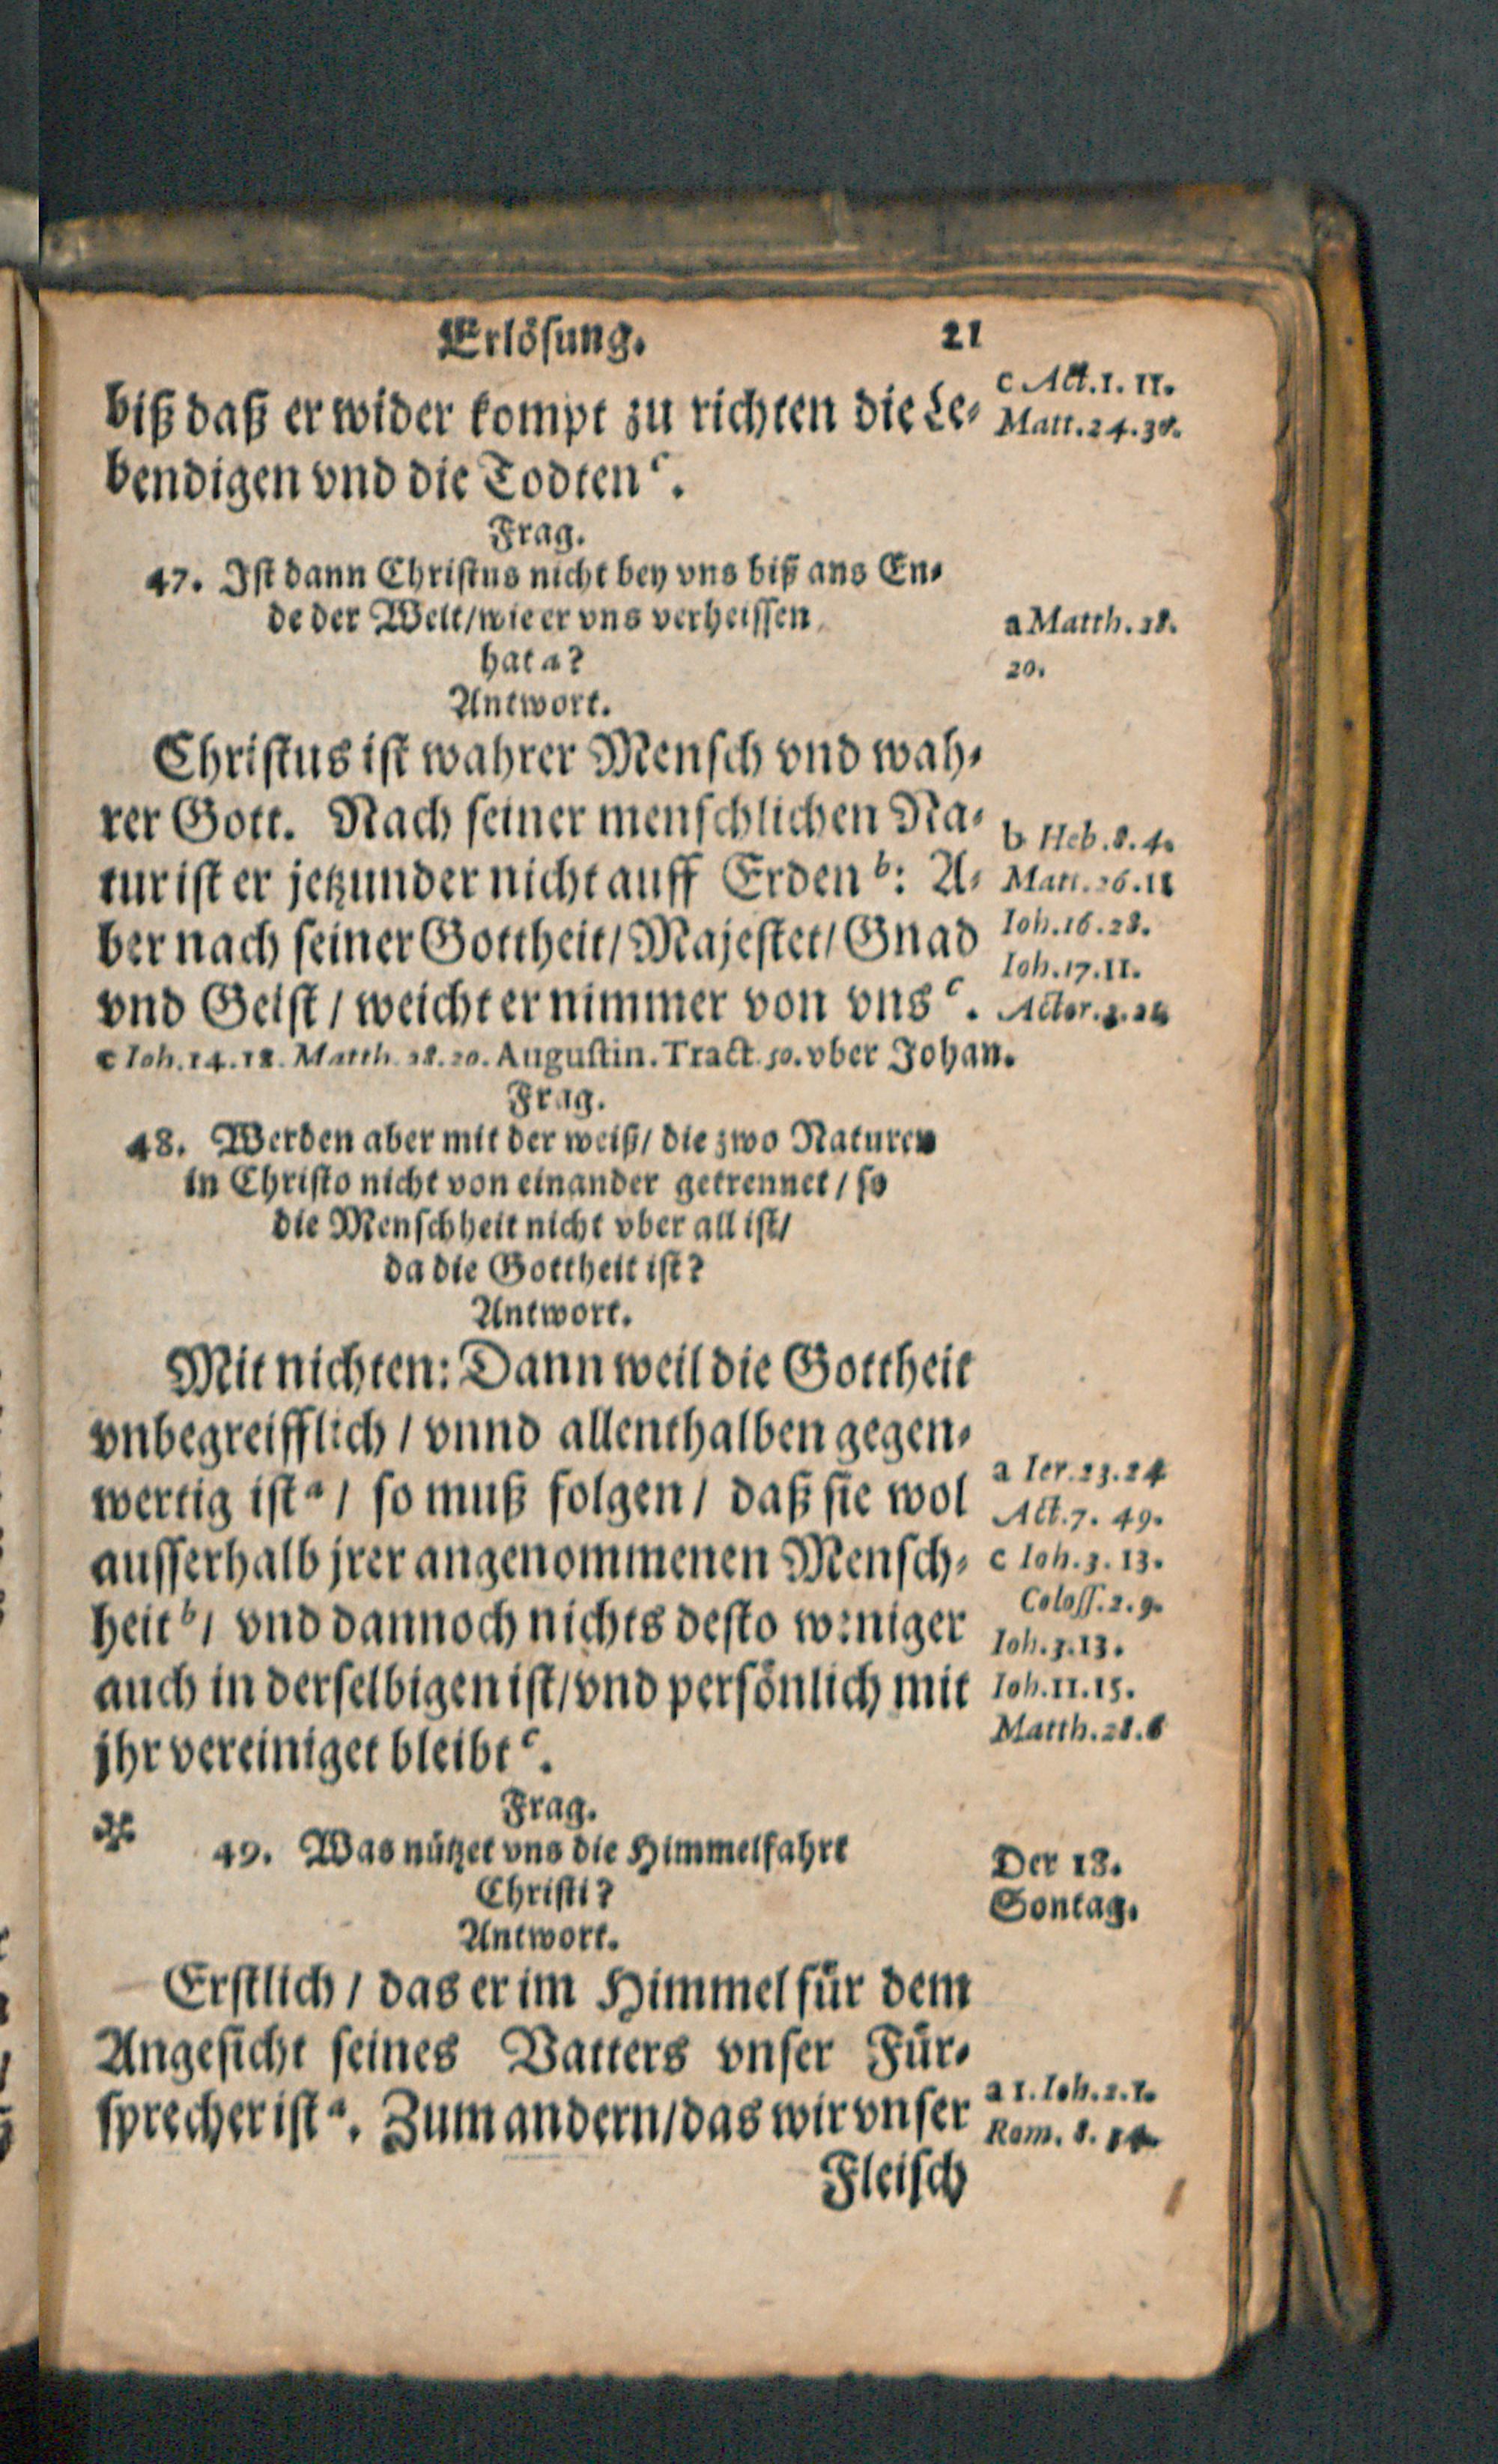 Erlösung. 21
biß daß er wider kompt zu richten die Le-
bendigen vnd die Todten c.
c Act. 1. 11.
Matt. 24. 30.
Frag.
47. Ist dann Christus nicht bey vns biß ans En-
de der Welt/wie er vns verheissen
hat a?
a Matth. 28.
20.
Antwort.
Christus ist wahrer Mensch vnd wah-
rer Gott. Nach seiner menschlichen Na-
tur ist er jetzunder nicht auff Erden b: A-
ber nach seiner Gottheit/ Majestet/ Gnad
vnd Geist / weicht er nimmer von vns c.
b Heb. 8. 4.
Matt. 26. 11
Ioh. 16. 28.
Ioh. 17. 11.
Actor. 3. 21
c Ioh. 14. 18. Matth. 28. 20. Augustin. Tract. 50. vber Johan.
Frag.
48. Werden aber mit der weiß/ die zwo Naturen
in Christo nicht von einander getrennet / so
die Menschheit nicht vber all ist/
da die Gottheit ist?
Antwort.
Mit nichten: Dann weil die Gottheit
vnbegreifflich / vnnd allenthalben gegen-
wertig ist a / so muß folgen / daß sie wol
ausserhalb jrer angenommenen Mensch-
heit b / vnd dannoch nichts desto weniger
auch in derselbigen ist/ vnd persönlich mit
jhr vereiniget bleibt c.
a Ier. 23. 24
Act. 7. 49.
c Ioh. 3. 13.
Coloss. 2. 9.
Ioh. 3. 13.
Ioh. 11. 15.
Matth. 28. 6
Frag.
49. Was nützet vns die Himmelfahrt
Christi?
Der 18.
Sontag.
Antwort.
Erstlich / das er im Himmel für dem
Angesicht seines Vatters vnser Für-
sprecher ist a. Zum andern/ das wir vnser
a 1. Ioh. 2. 1.
Rom. 8. 34
Fleisch